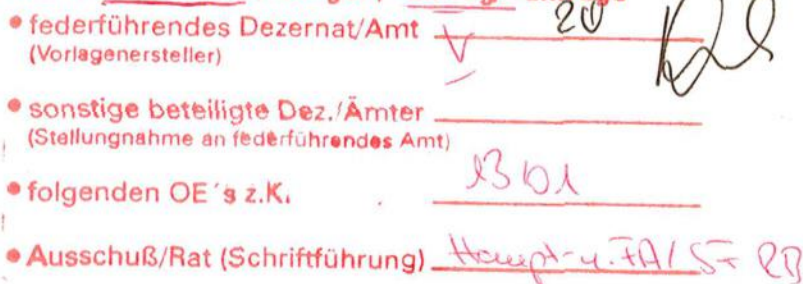 • federführendes Dezernat/Amt V 20
(Vorlagenersteller)
• sonstige beteiligte Dez./Ämter
(Stellungnahme an federführendes Amt)
• folgenden OE´s z.K.
• Ausschuß/Rat (Schriftführung) Haupt- u. FA /